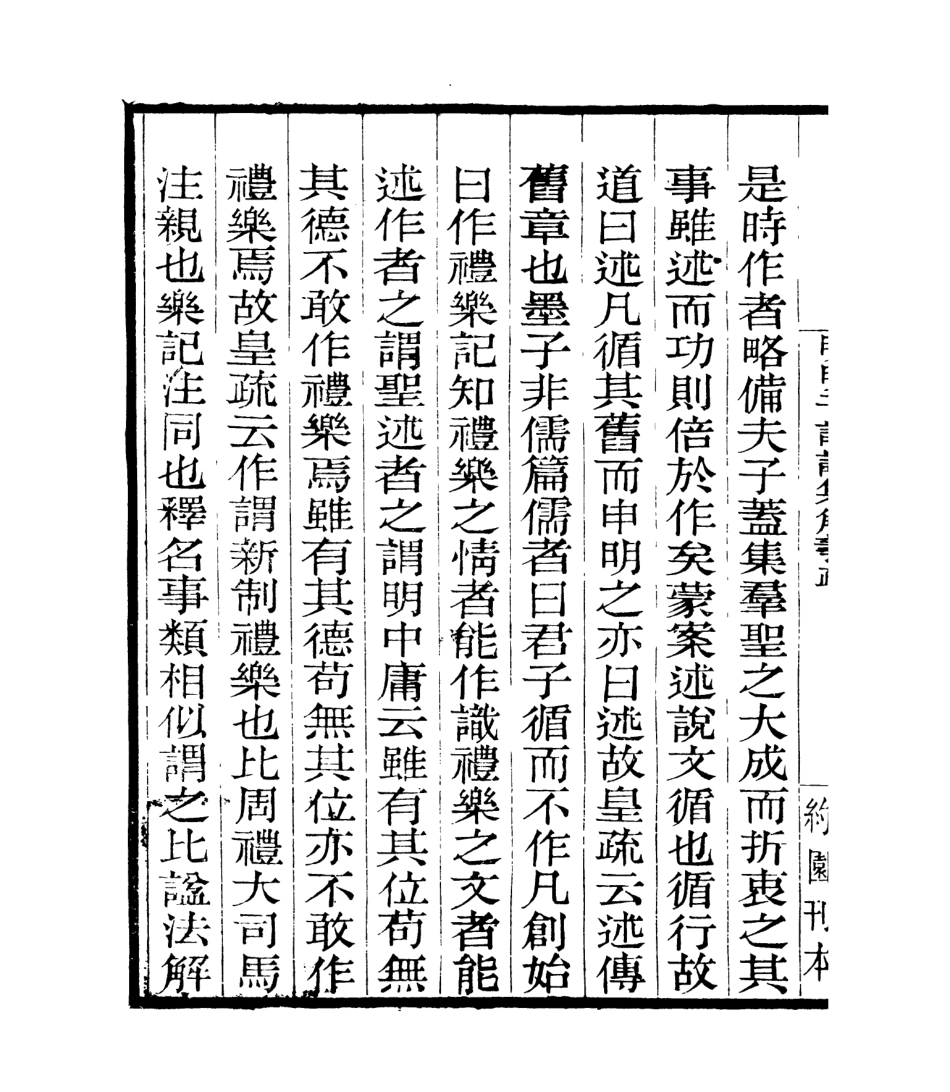 約園刊本
是時作者略備夫子蓋集羣聖之大成而折衷之其
事雖述而功則倍於作矣蒙案述說文循也循行故
道曰述凡循其舊而申明之亦曰述故皇疏云述傳
舊章也墨子非儒篇儒者曰君子循而不作凡創始
曰作禮樂記知禮樂之情者能作識禮樂之文者能
述作者之謂聖述者之謂明中庸云雖有其位苟無
其德不敢作禮樂焉雖有其德苟無其位亦不敢作
禮樂焉故皇疏云作謂新制禮樂也比周禮大司馬
注親也樂記注同也釋名事類相似謂之比諡法解